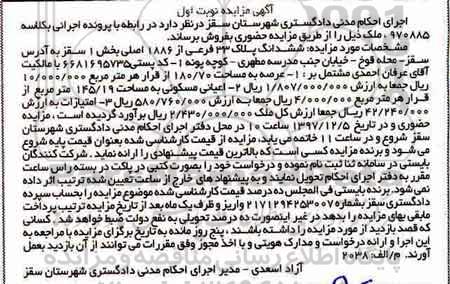 آگهی مزایده نوبت اول
اجرای احکام مدنی دادگستری شهرستان سقز درنظر دارد در رابطه با پرونده اجرائی بکلاسه
۹۷۰۸۸۵ ، ملک ذیل را از طریق مزایده حضوری بفروش برساند.
مشخصات مورد مزایده: ششدانگ پلاک ۲۳ فرعی از ۱۸۸۶ اصلی بخش ۱ سقز به آدرس
سقز- محله قوخ - خیابان جنب مدرسه مطهری - کوچه پونه ۱- کد پستی۶۶۸۱۶۹۵۷۳۵ با مالکیت
آقای عرفان احمدی مشتمل بر : ۱- عرصه به مساحت ۱۸۰/۷۰ از قرار هر متر مربع ۱۰/۰۰۰/۰۰۰
ریال جمعا به ارزش ۱/۸۰۷/۰۰۰/۰۰۰ ریال ۲- اعیانی مسکونی به مساحت ۱۴۵/۱۹ متر مربع از
قرار هر متر مربع ۴/۰۰۰/۰۰۰ ریال جمعا به ارزش ۵۸۰/۷۶۰/۰۰۰ ریال ۳- امتیازات به ارزش
۴۲/۲۴۰/۰۰۰ ریال جمعا ارزش کل ملک ۲/۴۳۰/۰۰۰/۰۰۰ ریال برآورد گردیده است ، مزایده
حضوری و در تاریخ ۱۳۹۷/۱۲/۵ ساعت ۱۰ در محل دفتر اجرای احکام مدنی دادگستری شهرستان
سقز شروع و در ساعت ۱۱ خاتمه می یابد. مزایده از قیمت کارشناسی شده بعنوان قیمت پایه شروع
می شود و برنده مزایده کسی است که بالاترین قیمت پیشنهادی را ارائه نماید . شرکت کنندگان
بایستی در سامانه ثنا ثبت نام نموده و درخواست خود را بصورت کتبی در پاکت در بسته راس ساعت
مقرر به دفتر اجرای احکام تحویل نمایند و به پیشنهاد های خارج از ساعت تعیین شده ترتیب اثر داده
نمی شود. برنده بایستی فی المجلس ده درصد قیمت کارشناسی شده موضوع مزایده را بحساب سپرده
دادگستری سقز بشماره ۲۱۷۱۲۹۴۲۵۳۰۰۷ واریز و ظرف یک ماه بعد از تاریخ مزایده ترتیب پرداخت
مابقی بهای مزایده را بدهد در غیر اینصورت ده درصد تحویلی به نفع دولت ضبط خواهد شد . کسانی
که قصد بازدید از مورد مزایده را داشته باشند ، پنج روز مانده به تاریخ برگزاری مزایده با مراجعه به
این اجرا و ارائه درخواست و مدارک هویتی و با اخذ مجوز وفق مقررات می توانند از آن بازدید بعمل
آورند. م/الف: ۲۰۳۸
آزاد اسعدی - مدیر اجرای احکام مدنی دادگستری شهرستان سقز